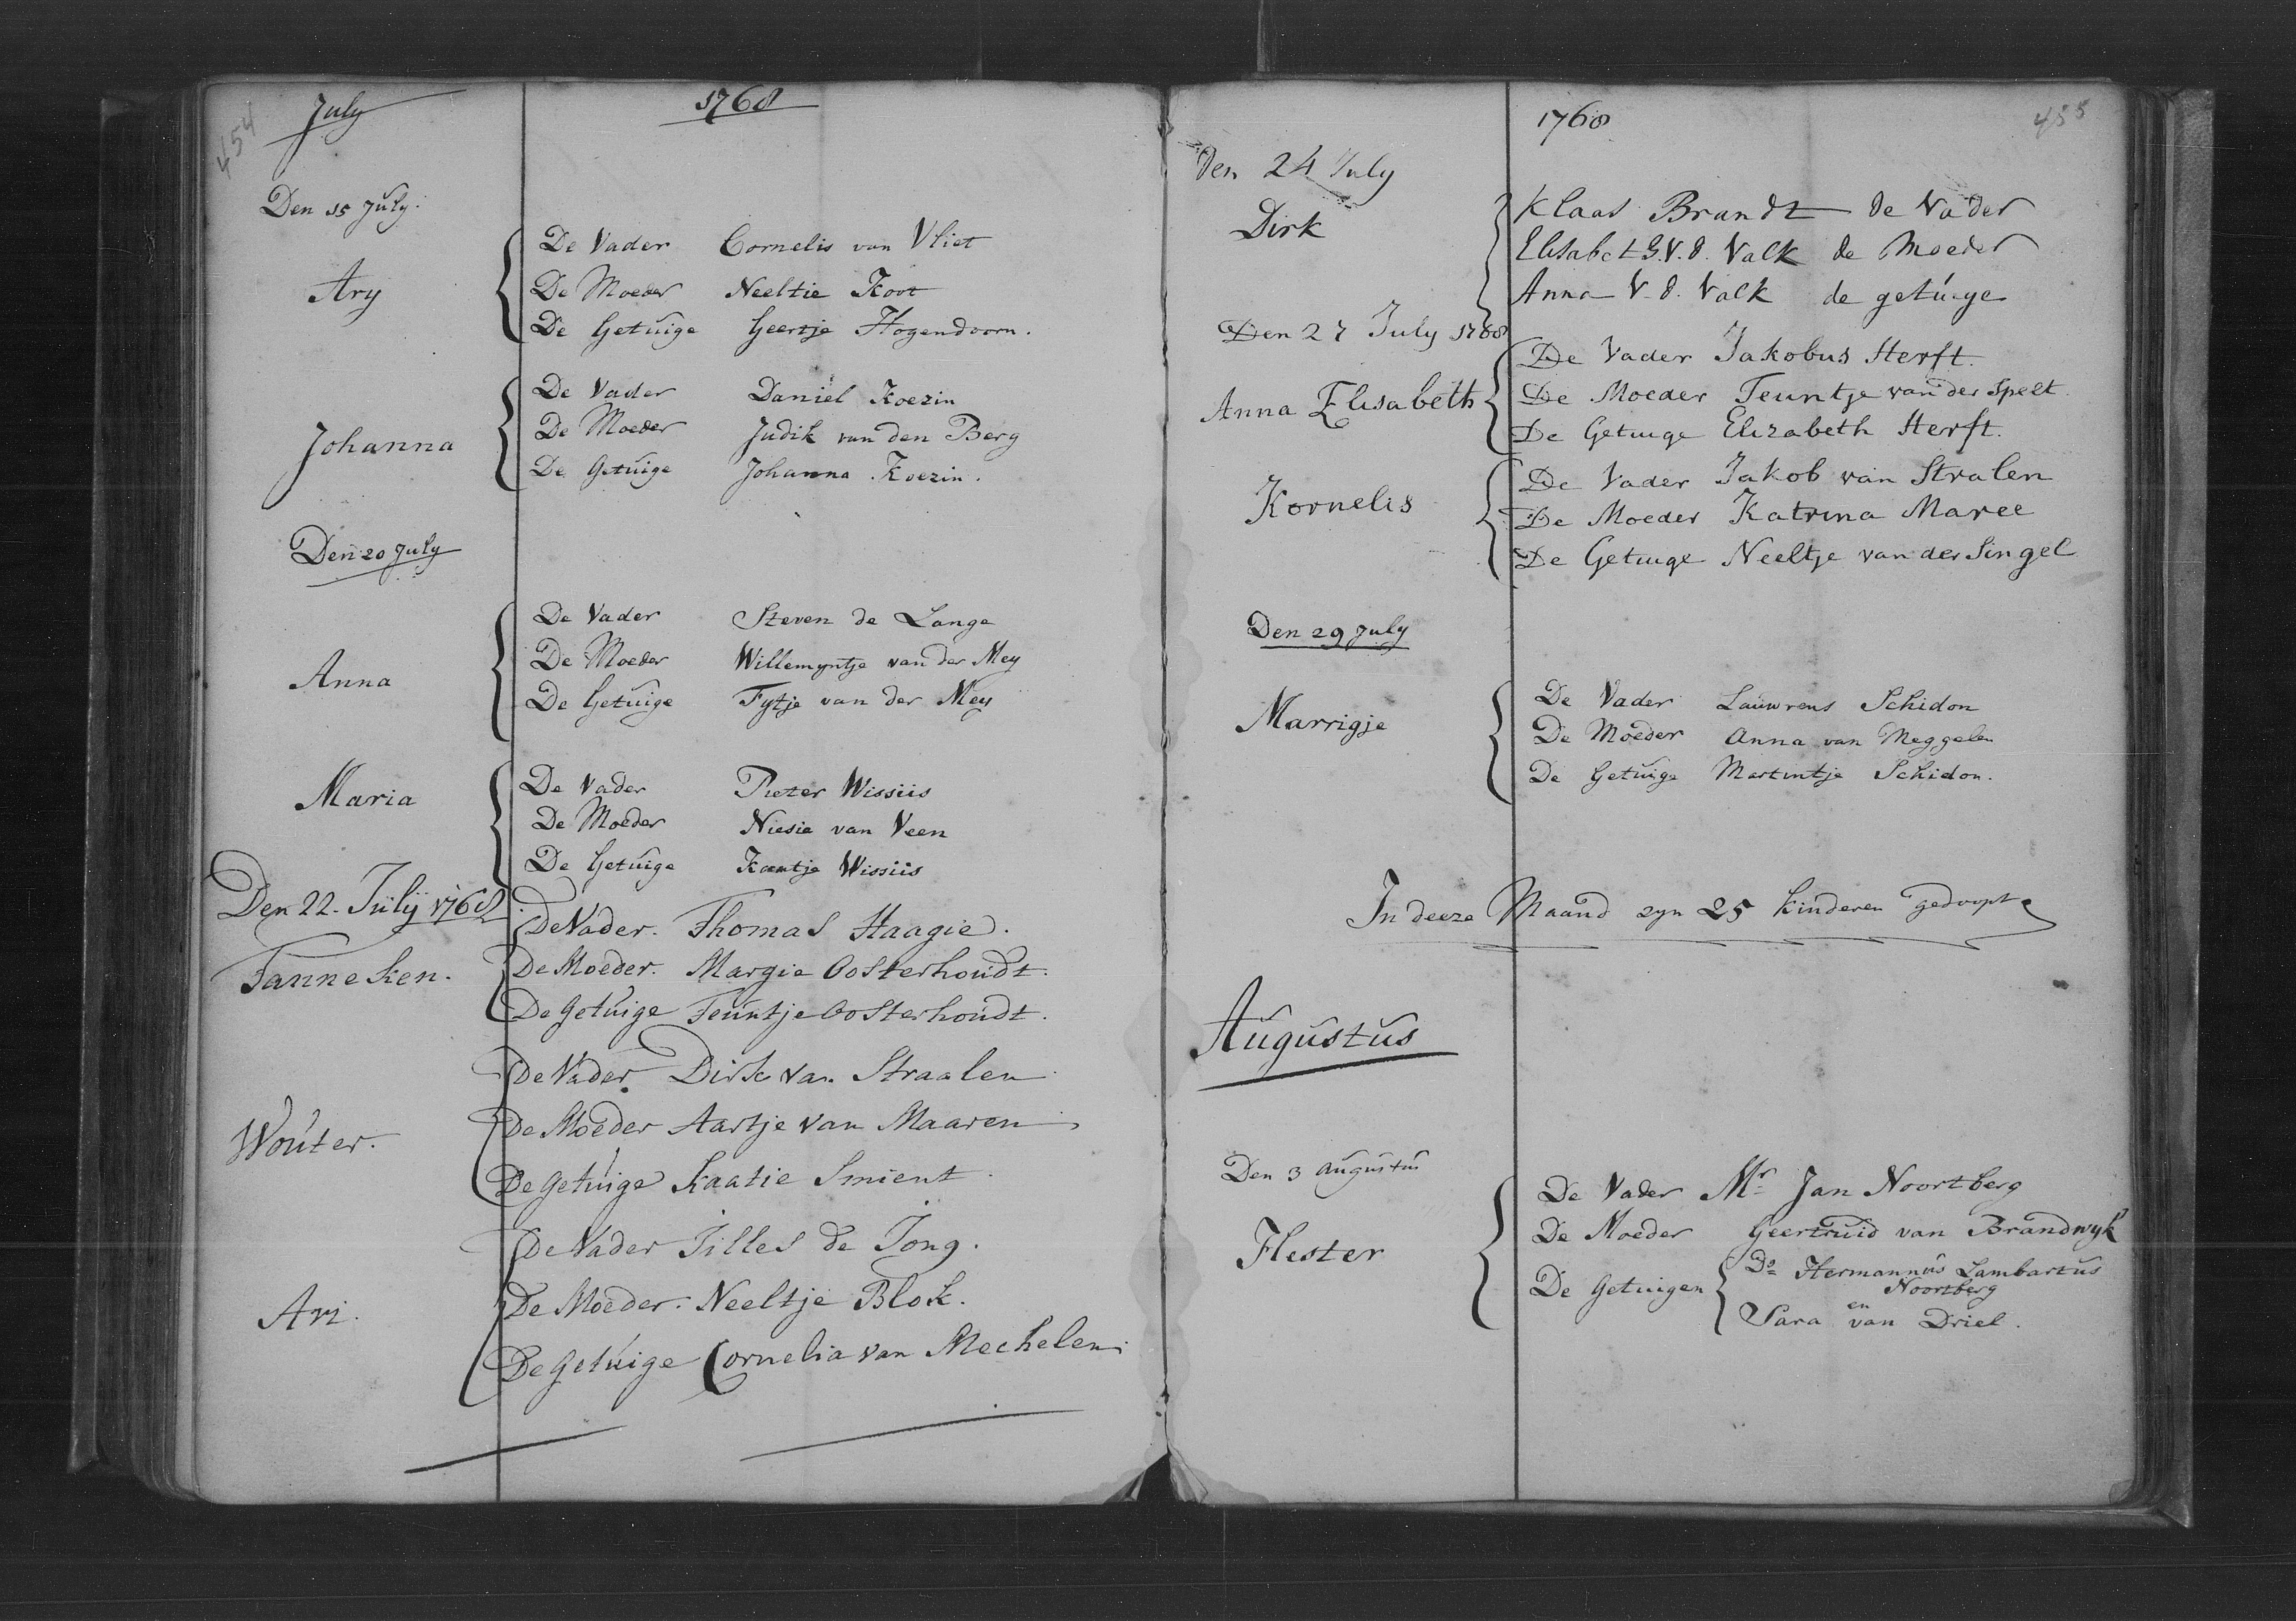 454
July 1768
Den 15 July.
Ary
De Vader Cornelis van Vliet
De Moeder Neeltie Koot
De Getuige Geertje Hogendoorn.
Johanna
De Vader Daniel Koezin
De Moeder Judik van den Berg
De Getuige Johanna Koezin.
Den 20 July
Anna
De Vader Steven de Lange
De Moeder Willemyntje van der Mey
De Getuige Fytje van der Mey
Maria
De Vader Pieter Wissiis
De Moeder Niesie van Veen
De Getuige Kaatje Wissiis
Den 22. July 1768
Janneken.
De Vader. Thomas Haagie.
De Moeder. Margie Oosterhoudt.
De Getuige Teuntje Oosterhoudt.
Wouter.
De Vader Dirk van Straalen
De Moeder Aartje van Maaren
De Getuige Kaatie Smient
Ari.
De Vader Jilles de Jong.
De Moeder. Neeltje Blok.
De Getuige Cornelia van Mechelen
1768 455
Den 24 July
Dirk
Klaas Brandt de Vader
Elisabet G.V.D. Valk de Moeder
Anna V.D. Valk de getuige
Den 27 July 1768
Anna Elisabeth
De Vader Jakobus Herft.
De Moeder Teuntje van der Spelt.
De Getuige Elizabeth Herft.
Kornelis
De Vader Jakob van Stralen
De Moeder Katrina Maree
De Getuige Neeltje van der Singel
Den 29 July
Marrigje
De Vader Lauwrens Schidon
De Moeder Anna van Meggelen
De Getuige Martintje Schidon.
In deeze Maand zyn 25 Kinderen gedoopt
Augustus
Den 3 Augustus
Hester
De Vader Mr Jan Noortberg
De Moeder Geertruid van Brandwyk
De Getuigen Ds Hermannus Lambartus
Noortberg
en
Sara van Driel.